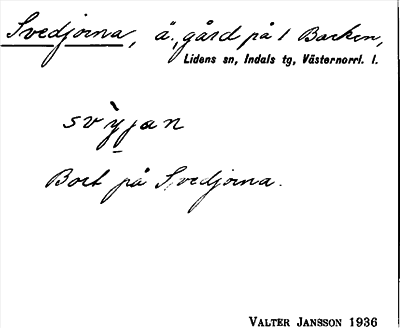 Svedjorna, ä., gård på 1 Backen,
Lidens sn, Indals tg, Västernorrl. l.
svỳ̠jan
Bort på Svedjorna.
VALTER JANSSON 1936